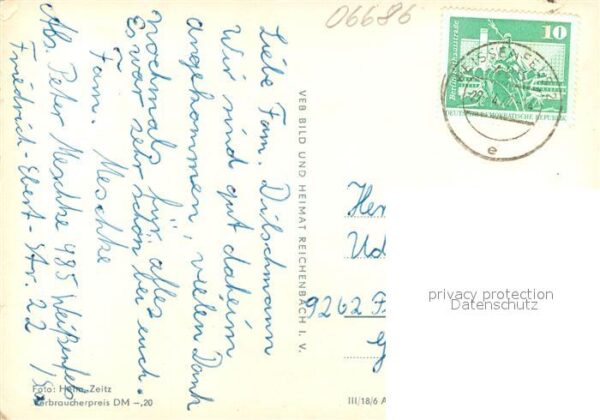 06686
10
Berlin, Rathausstraße
DEUTSCHE DEMOKRATISCHE REPUBLIK
WEISSENFELS
e
Liebe Fam. Dilschmann
Wir sind gut daheim
angekommen, vielen Dank
nochmals für alles
Es war sehr schön bei euch.
Fam. Meschke
Abs. Peter Meschke 485 Weißenfels
Friedrich-Ebert-Str. 22
VEB BILD UND HEIMAT REICHENBACH I. V.
9262
privacy protection
Datenschutz
Foto: Hahn, Zeitz
Verbraucherpreis DM -,20
III/18/6 A